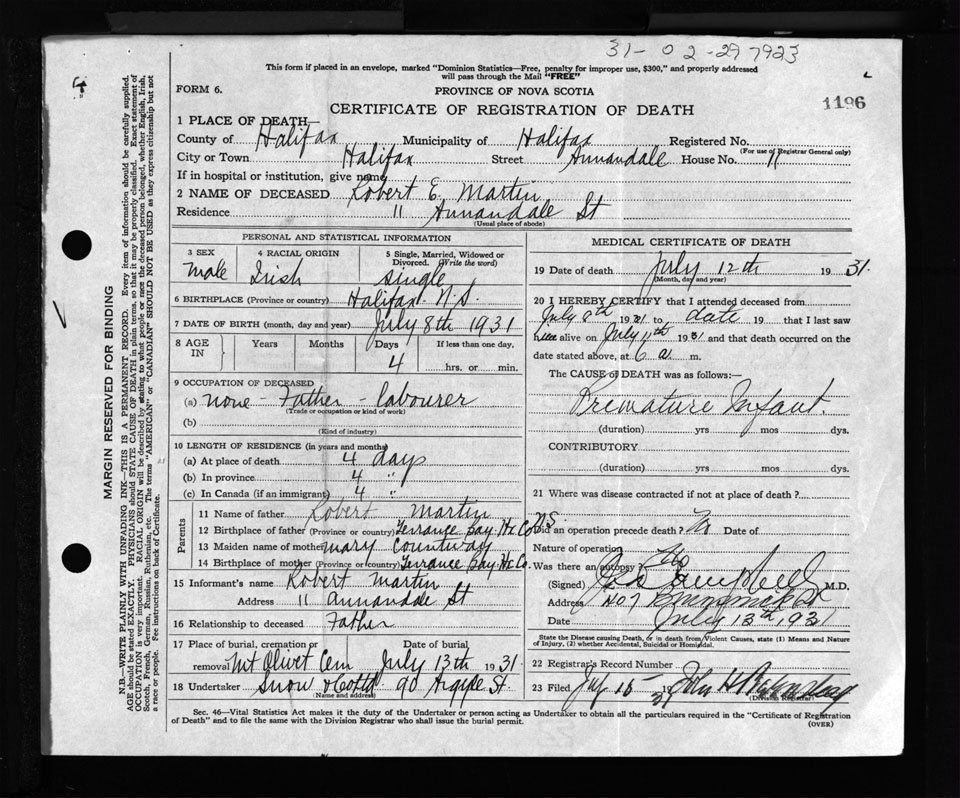 31-02-297923
This form if placed in an envelope, marked "Dominion Statistics—Free, penalty for improper use, $300," and properly addressed
will pass through the Mail "FREE"
FORM 6.
PROVINCE OF NOVA SCOTIA
1196
CERTIFICATE OF REGISTRATION OF DEATH
1 PLACE OF DEATH
County of Halifax Municipality of Halifax Registered No.
(For use of Registrar General only)
City or Town Halifax Street Annandale House No. 11
If in hospital or institution, give name
2 NAME OF DECEASED Robert E. Martin
Residence 11 Annandale St
(Usual place of abode)
PERSONAL AND STATISTICAL INFORMATION
3 SEX 4 RACIAL ORIGIN 5 Single, Married, Widowed or Divorced. (Write the word)
Male Irish single
6 BIRTHPLACE (Province or country) Halifax N.S.
7 DATE OF BIRTH (month, day and year) July 8th 1931
8 AGE IN Years Months Days If less than one day,
4 hrs. or min.
9 OCCUPATION OF DECEASED
(a) None - Father - labourer
(Trade or occupation or kind of work)
(b)
(Kind of industry)
10 LENGTH OF RESIDENCE (in years and months)
(a) At place of death 4 days
(b) In province 4 "
(c) In Canada (if an immigrant) 4 "
Parents
11 Name of father Robert Martin
12 Birthplace of father (Province or country) Terrance Bay Hx Co N.S.
13 Maiden name of mother Mary Countway
14 Birthplace of mother (Province or country) Terrance Bay Hx Co.
15 Informant's name Robert Martin
Address 11 Annandale St
16 Relationship to deceased Father
17 Place of burial, cremation or removal Date of burial
Mt Olivet Cem July 13th 1931
18 Undertaker Snow & Co Ltd 90 Argyle St.
(Name and address)
MEDICAL CERTIFICATE OF DEATH
19 Date of death July 12th 1931.
(Month, day and year)
20 I HEREBY CERTIFY that I attended deceased from
July 8th 1931 to date 19 that I last saw
h alive on July 11th 1931 and that death occurred on the
date stated above, at 6 a m.
The CAUSE of DEATH was as follows:—
Premature Infant.
(duration) yrs mos dys.
CONTRIBUTORY
(duration) yrs mos dys.
21 Where was disease contracted if not at place of death?
Did an operation precede death? No Date of
Nature of operation
Was there an autopsy? No
(Signed) Campbell M.D.
Address 407
Date July 13th 1931
State the Disease causing Death, or in death from Violent Causes, state (1) Means and Nature
of Injury, (2) whether Accidental, Suicidal or Homicidal.
22 Registrar's Record Number
23 Filed July 15 - 31 John H
(Division Registrar)
Sec. 46—Vital Statistics Act makes it the duty of the Undertaker or person acting as Undertaker to obtain all the particulars required in the "Certificate of Registration
of Death" and to file the same with the Division Registrar who shall issue the burial permit.
(OVER)
MARGIN RESERVED FOR BINDING
N.B.—WRITE PLAINLY WITH UNFADING INK—THIS IS A PERMANENT RECORD. Every item of information should be carefully supplied.
AGE should be stated EXACTLY. PHYSICIANS should STATE CAUSE OF DEATH in plain terms, so that it may be properly classified. Exact statement of
OCCUPATION is very important. RACIAL ORIGIN will be described by stating to what people or race the deceased person belonged, whether English, Irish,
Scotch, French, German, Russian, Ruthenian, etc. The terms "AMERICAN" or "CANADIAN" SHOULD NOT BE USED as they express citizenship but not
a race or people. See instructions on back of Certificate.